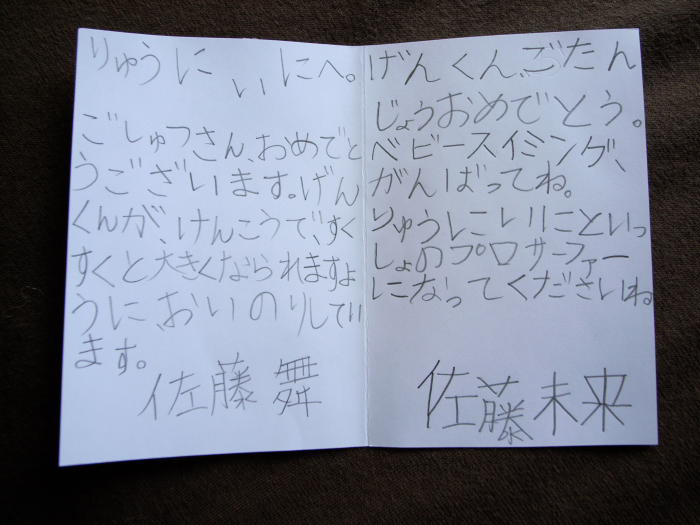 りゅうにいにへ。
ごしゅつさん、おめでと
うございます。げん
くんが、けんこうで、すく
すくと大きくなられますよ
うに、おいのりしてい
ます。
佐藤 舞
げんくん、ごたん
じょうおめでとう。
ベビースイミング、
がんばってね。
りゅうにいにといっ
しょのプロサーファー
になってくださいね
佐藤未来